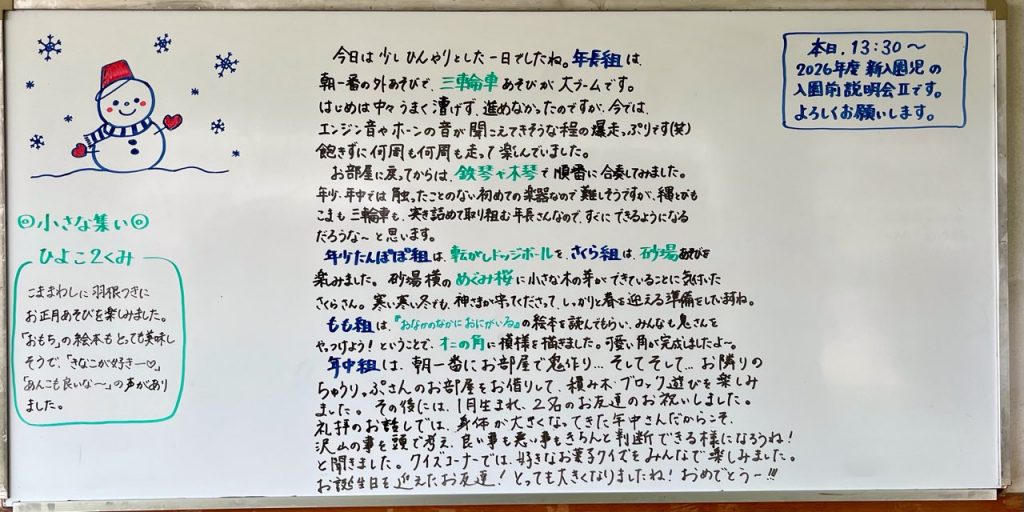 今日は少しひんやりとした一日でしたね。年長組は、
朝一番の外あそびで、三輪車あそびが大ブームです。
はじめは中々うまく漕げず、進めなかったのですが、今では、
エンジン音やホーンの音が聞こえてきそうな程の爆走っぷりです(笑)
飽きずに何周も何周も走って楽しんでいました。
お部屋に戻ってからは、鉄琴や木琴で順番に合奏してみました。
年少、年中では触ったことのない初めての楽器なので難しそうですが、縄とびも
こまも三輪車も、突き詰めて取り組む年長さんなので、すぐにできるようになる
だろうな〜と思います。
年少たんぽぽ組は、転がしドッジボールを、さくら組は、砂場あそびを
楽しみました。砂場横のめぐみ桜に小さな木の芽ができていることに気付いた
さくらさん。寒い寒い冬でも、神さまが守ってくださって、しっかりと春を迎える準備をしていますね。
もも組は、『おなかのなかにおにがいる』の絵本を読んでもらい、みんなも鬼さんを
やっつけよう!ということで、オニの角に模様を描きました。可愛い角が完成しましたよ〜。
年中組は、朝一番にお部屋で鬼作り…そしてそして…お隣りの
ちゅうりっぷさんのお部屋をお借りして、積み木・ブロック遊びを楽しみ
ました。その後には、1月生まれ、2名のお友達のお祝いしました。
礼拝のお話しでは、身体が大きくなってきた年中さんだからこそ、
沢山の事を頭で考え、良い事も悪い事もきちんと判断できる様になろうね!
と聞きました。クイズコーナーでは、好きなお菓子クイズをみんなで楽しみました。
お誕生日を迎えたお友達!とっても大きくなりましたね!おめでとうー!!!
本日、13:30〜
2026年度 新入園児の
入園前説明会Ⅱです。
よろしくお願いします。
◎小さな集い◎
ひよこ2くみ
こままわしに羽根つきに
お正月あそびを楽しみました。
「おもち」の絵本もとっても美味し
そうで、「きなこが好きー♡」
「あんこも良いな〜」の声があり
ました。